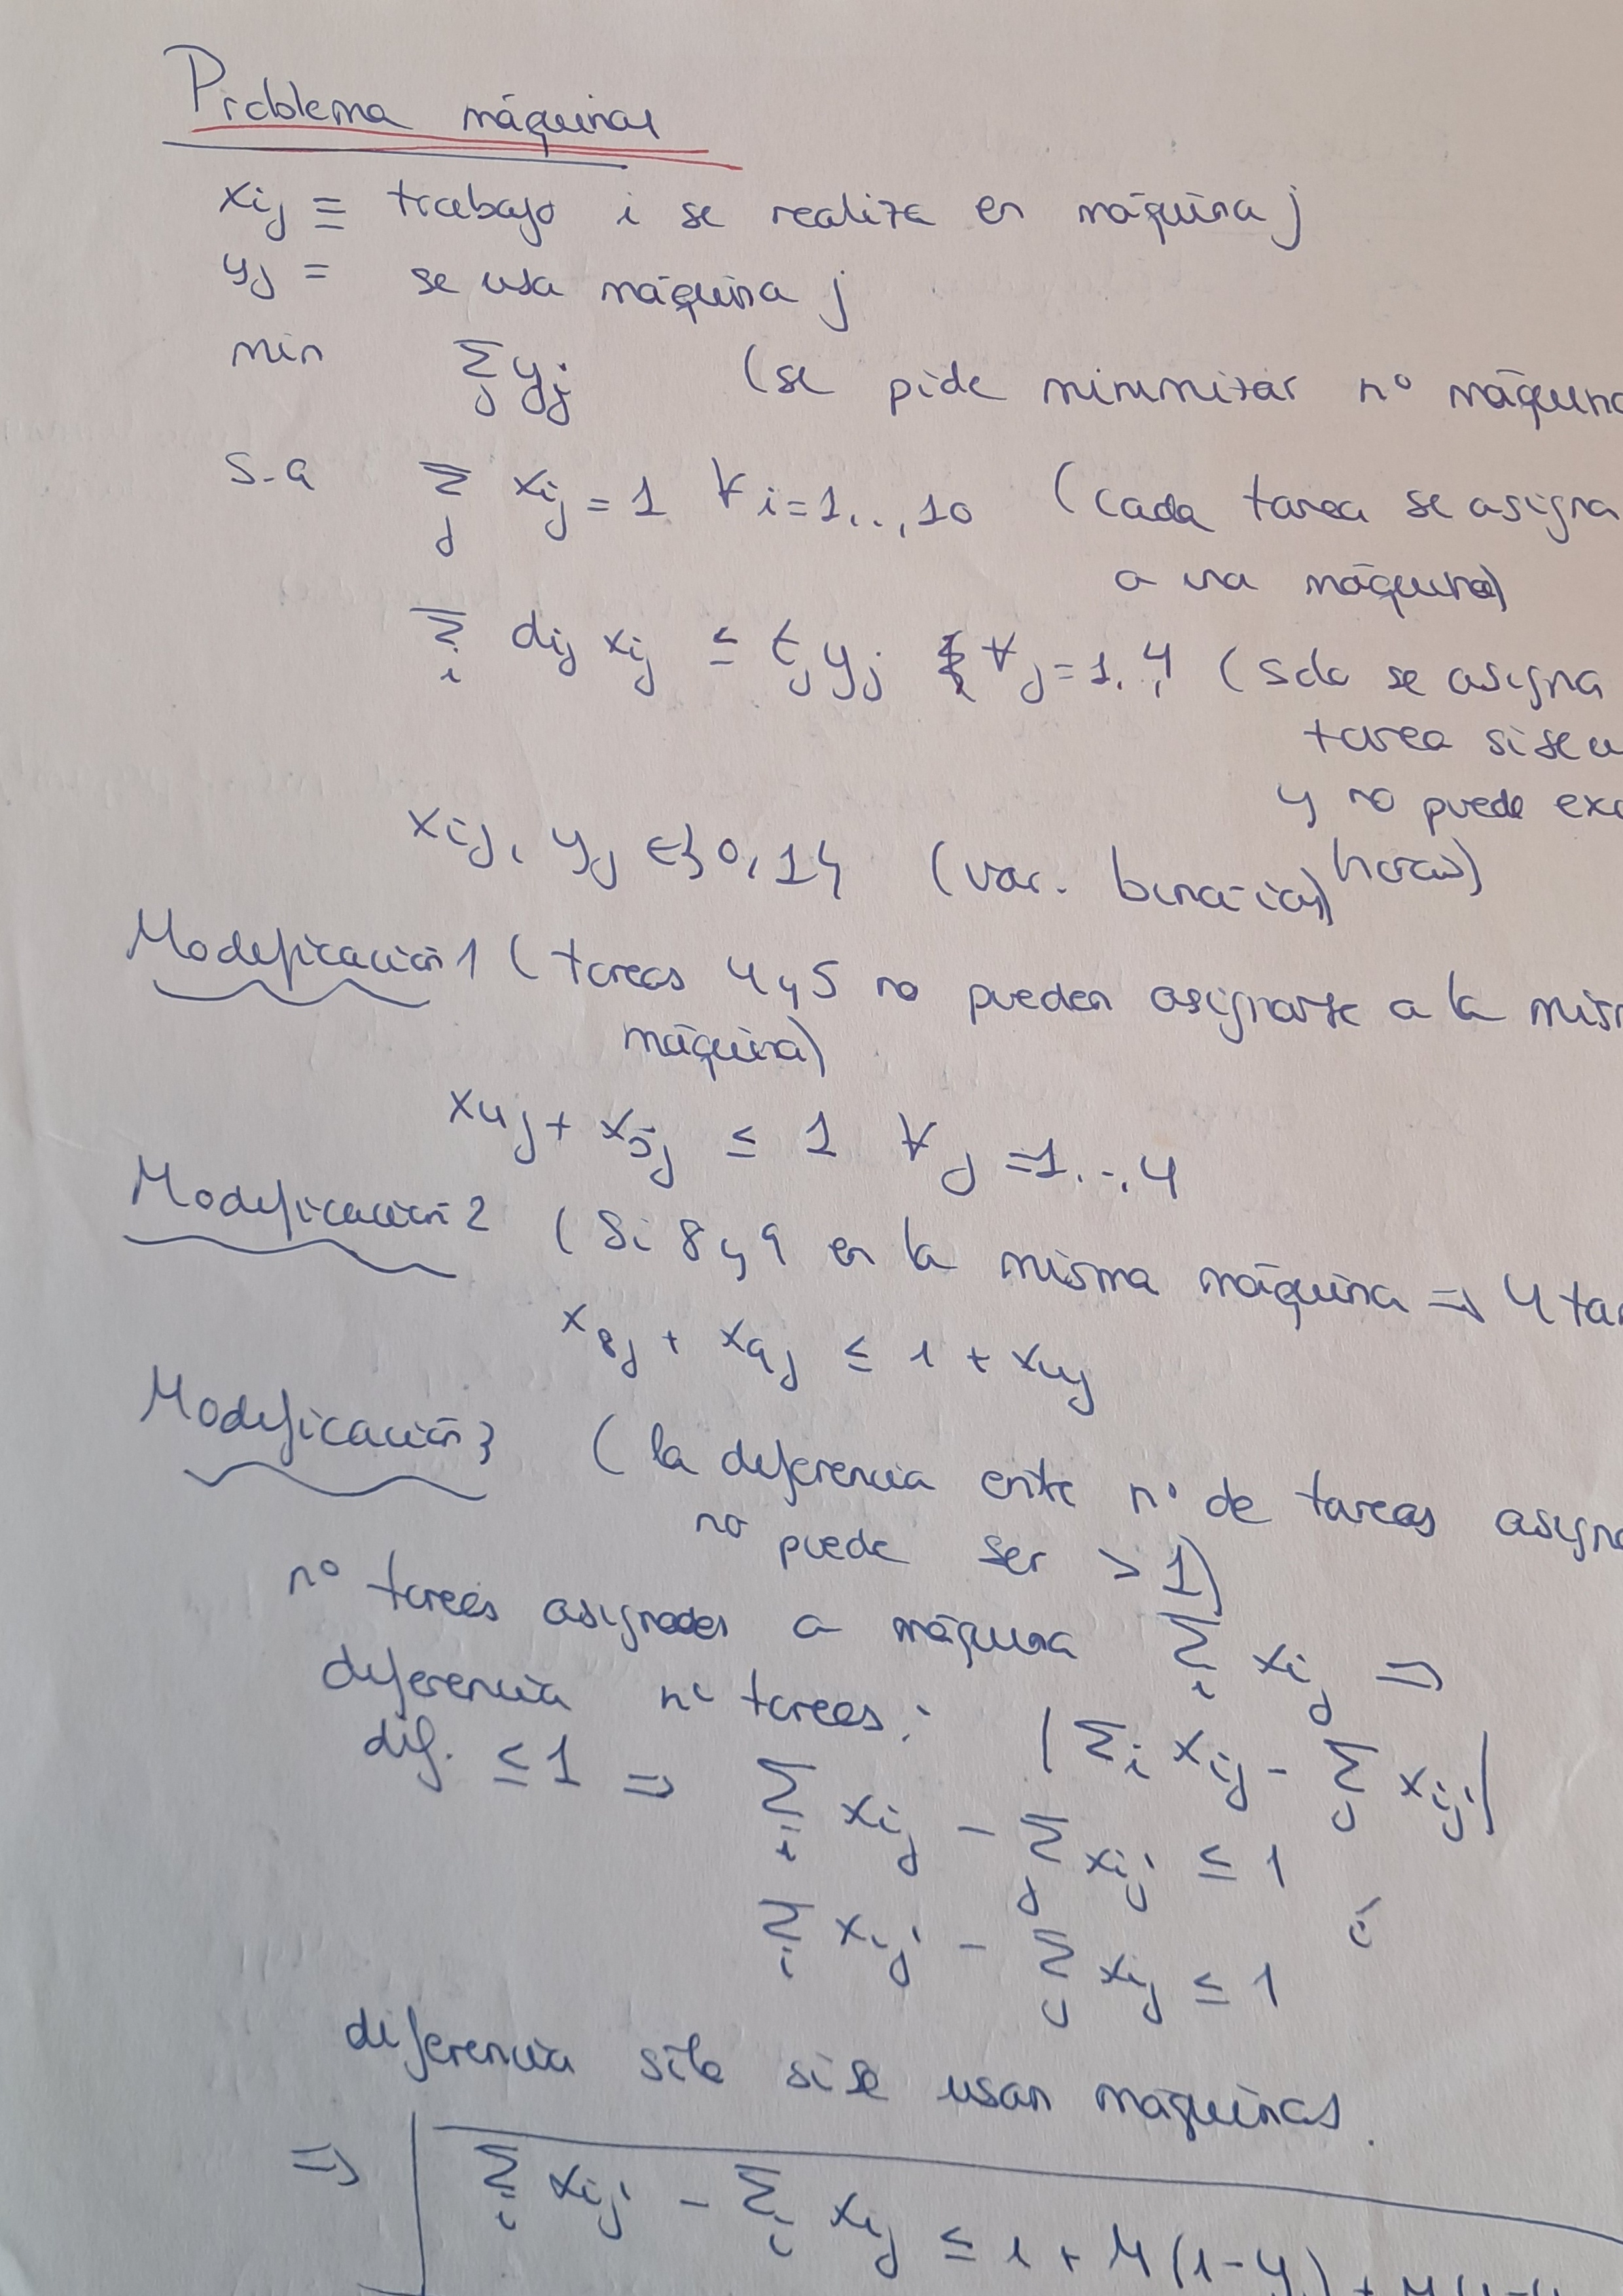 Problema máquinas
xij ≡ trabajo i se realiza en máquina j
yj = se usa máquina j
min ∑j yj (se pide minimizar nº máquina
s.a ∑j xij = 1 ∀ i=1..,10 (cada tarea se asigna
a una máquina)
∑i dij xij ≤ tj yj ∀ j=1..,4 (solo se asigna
tarea si se u
y no puede exc
xij, yj ∈ {0,1} (var. binarias) horas)
Modificación 1 (tareas 4 y 5 no pueden asignarse a la mism
máquina)
x4j + x5j ≤ 1 ∀ j =1..,4
Modificación 2 (Si 8 y 9 en la misma máquina ⇒ 4 tam
x8j + x9j ≤ 1 + x4j
Modificación 3 (la diferencia entre nº de tareas asigna
no puede ser > 1)
nº tareas asignadas a máquina ∑i xij ⇒
diferencia nº tareas: |∑i xij - ∑j xij'|
dif. ≤ 1 ⇒ ∑i xij - ∑j xij' ≤ 1
∑i xij' - ∑j xij ≤ 1
diferencia sólo si se usan máquinas.
⇒ ∑i xij' - ∑i xij ≤ 1 + M(1-yj) +